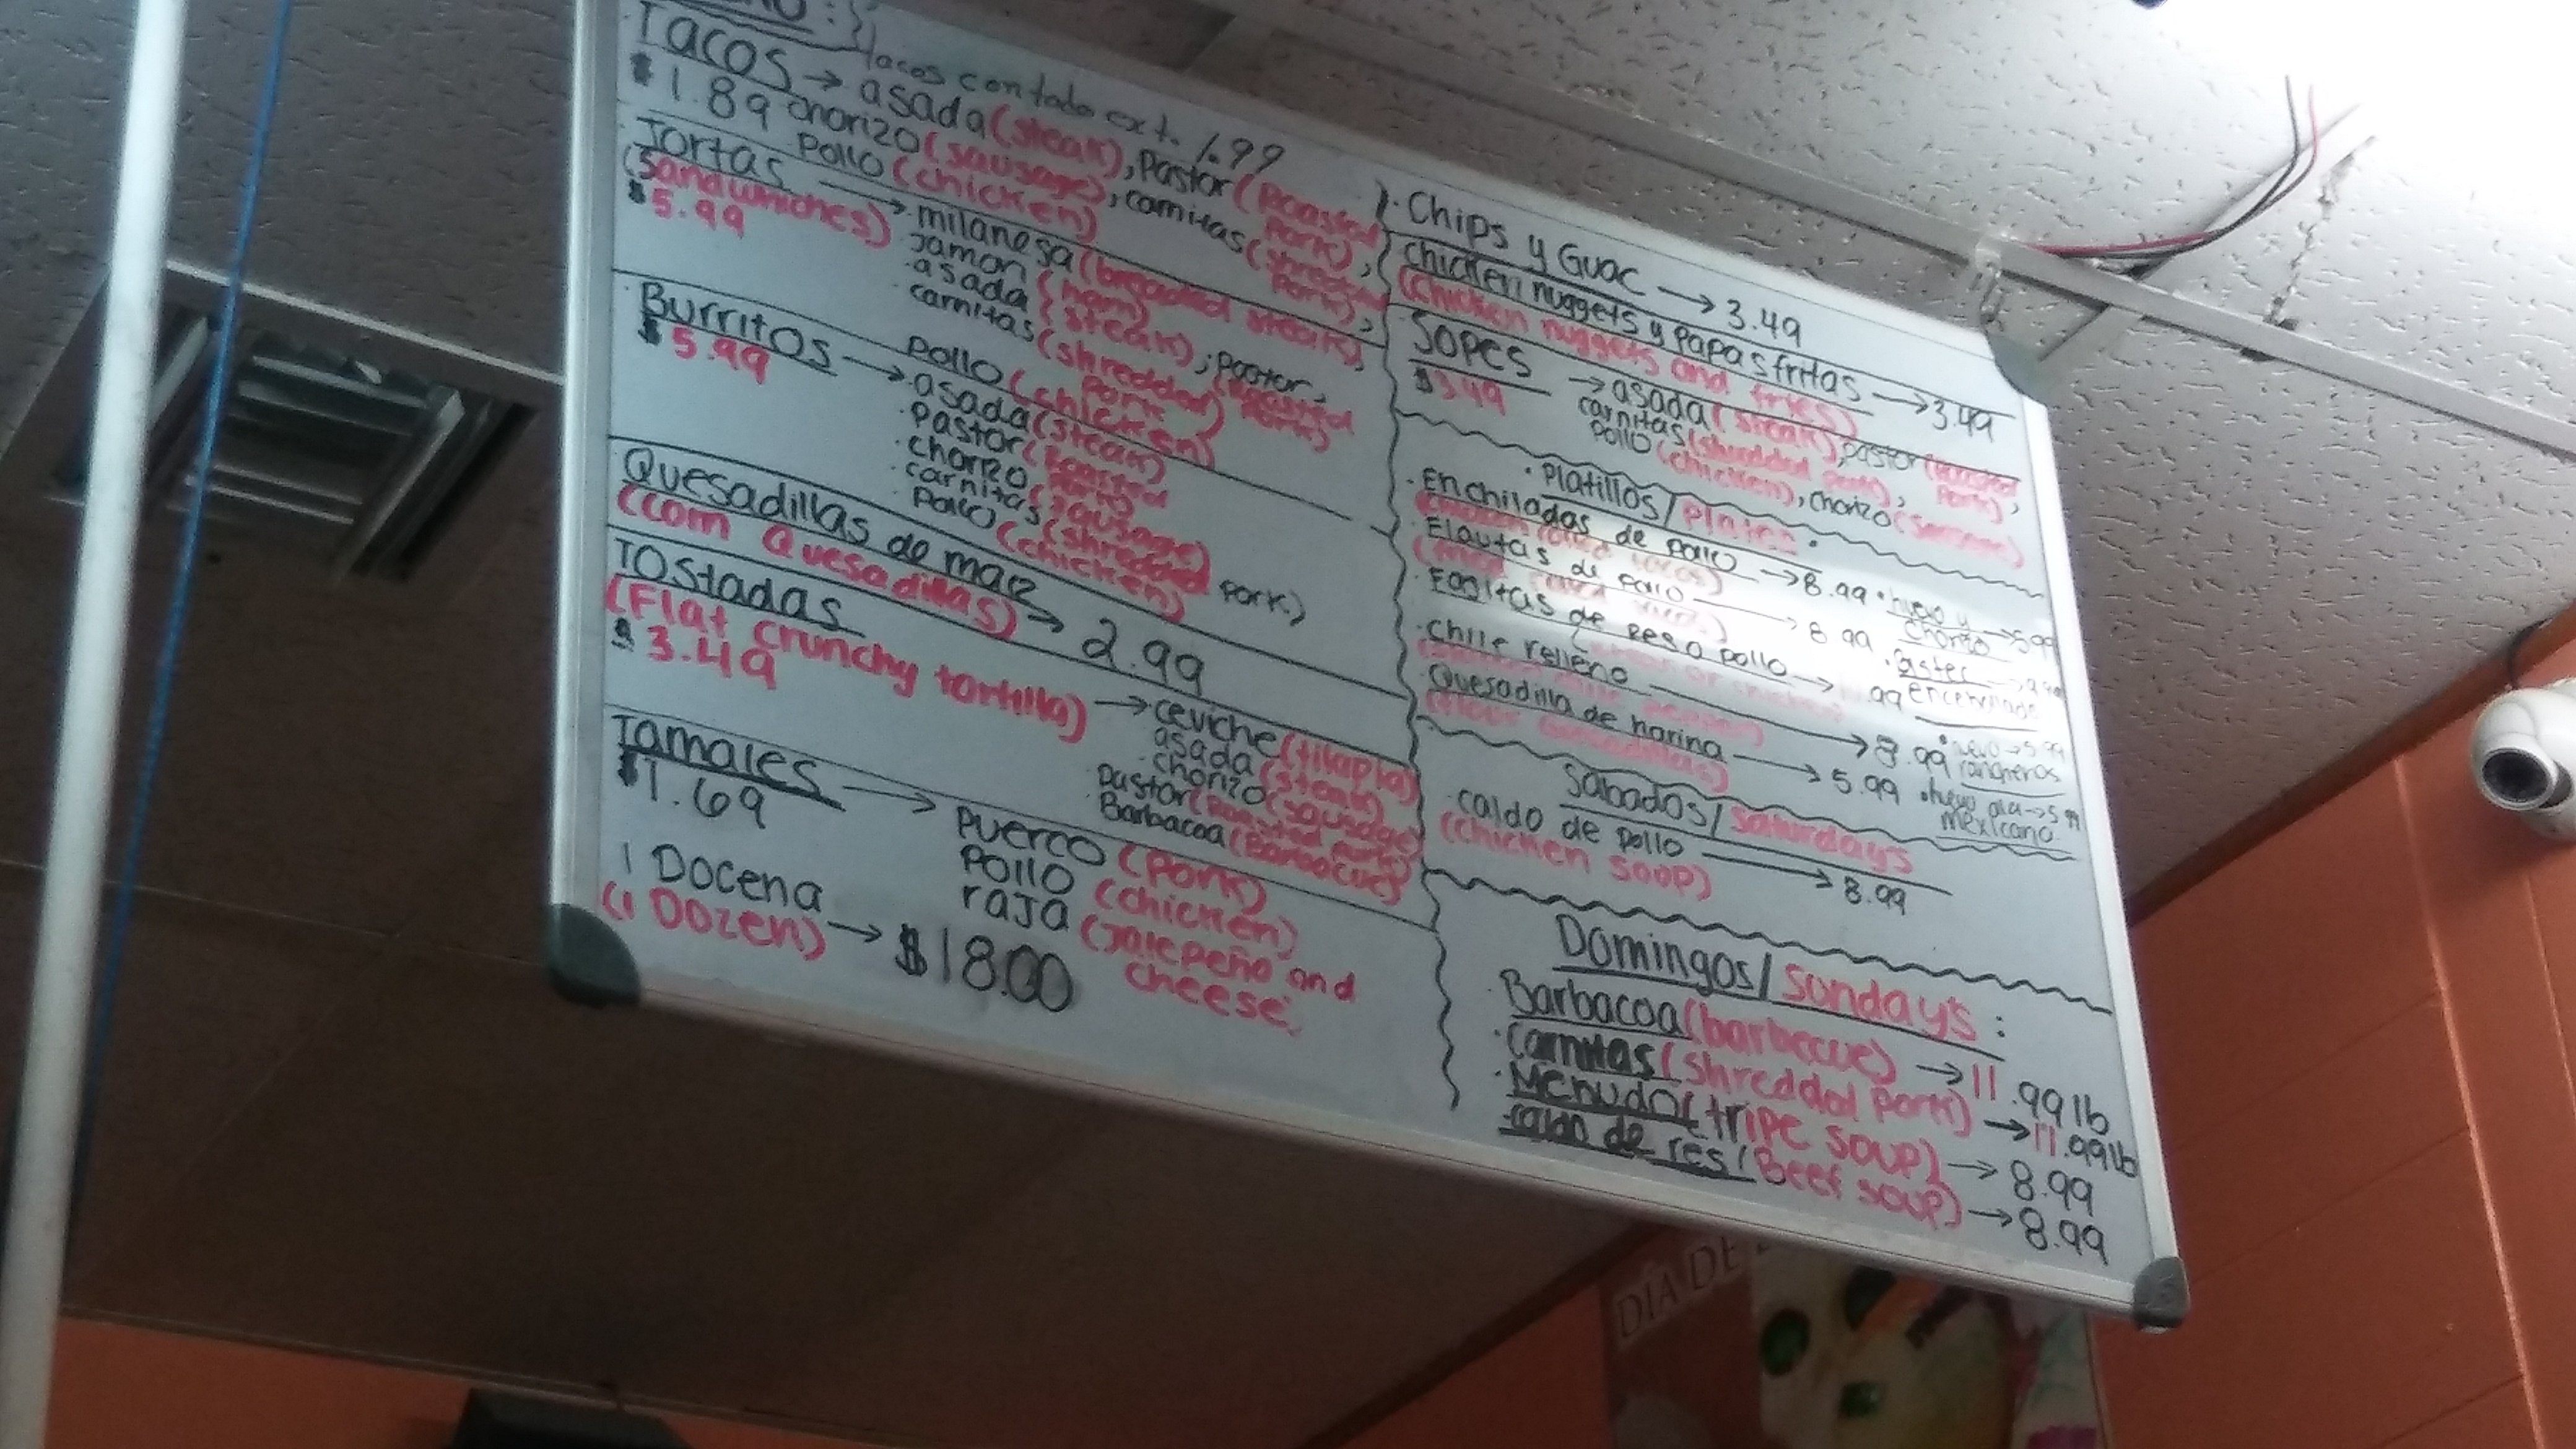 Tacos → asada (steak), Pastor (Roasted Pork),
tacos con todo ext. 1.99
$1.89 chorizo (sausage), carnitas (shredded Pork),
Pollo (chicken)
Tortas → milanesa (breaded steak),
(Sandwiches) Jamon (ham)
$5.99 .asada (steak), Pastor, (Roasted Pork)
.carnitas (shredded Pork)
Pollo (chicken)
Burritos → .asada (steak)
$5.99 .Pastor (Roasted Pork)
.chorizo (sausage)
.carnitas (shredded Pork)
Pollo (chicken)
Quesadillas de maiz → 2.99
(corn Quesadillas)
Tostadas
(Flat crunchy tortilla) → ceviche (tilapia)
$3.49 asada (steak)
.chorizo (sausage)
Pastor (Roasted Pork)
Barbacoa (Barbacue)
Tamales → Puerco (Pork)
$1.69 Pollo (chicken)
raja (Jalepeño and cheese,
1 Docena → $18.00
(1 Dozen)
. Chips y Guac → 3.49
Chicken nuggets y Papas fritas → 3.49
(Chicken nuggets and fries)
Sopes → asada (steak), Pastor (Roasted Pork),
$3.49 carnitas (shredded Pork),
Pollo (chicken), chorizo
.Platillos/
. Enchiladas de pollo → 8.99
. Flautas de Pollo → 8.99
. Fagitas de Res o pollo → .99
. Chile relleno → 8.99
. Quesadilla de harina → 5.99
. huevo y chorizo → 5.99
encebollado
rancheros
mexicano
Sabados/Saturdays
. caldo de pollo → 8.99
(chicken soup)
Domingos/Sundays:
. Barbacoa (barbecue) → 11.99lb
. Carnitas (shreddal Pork) → 11.99lb
. Menudo (tripe soup) → 8.99
caldo de res (Beef soup) → 8.99
DIA DE